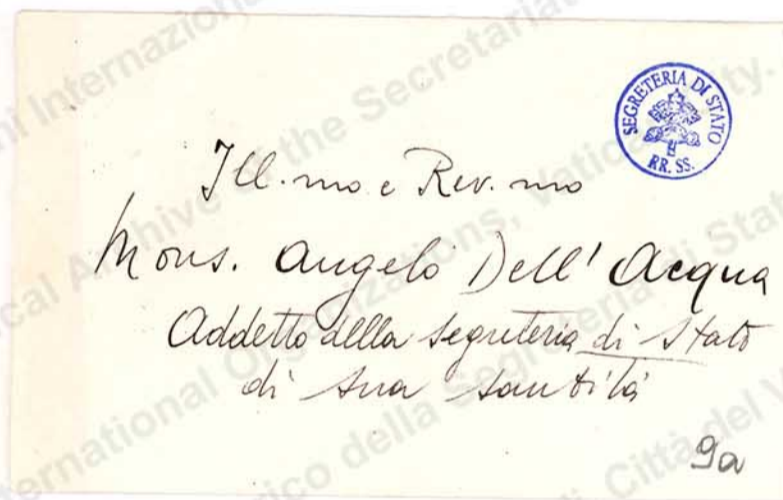 SEGRETERIA DI STATO
RR. SS.
Ill.mo e Rev.mo
Mons. Angelo Dell'Acqua
Addetto della Segreteria di Stato
di Sua Santità
9a